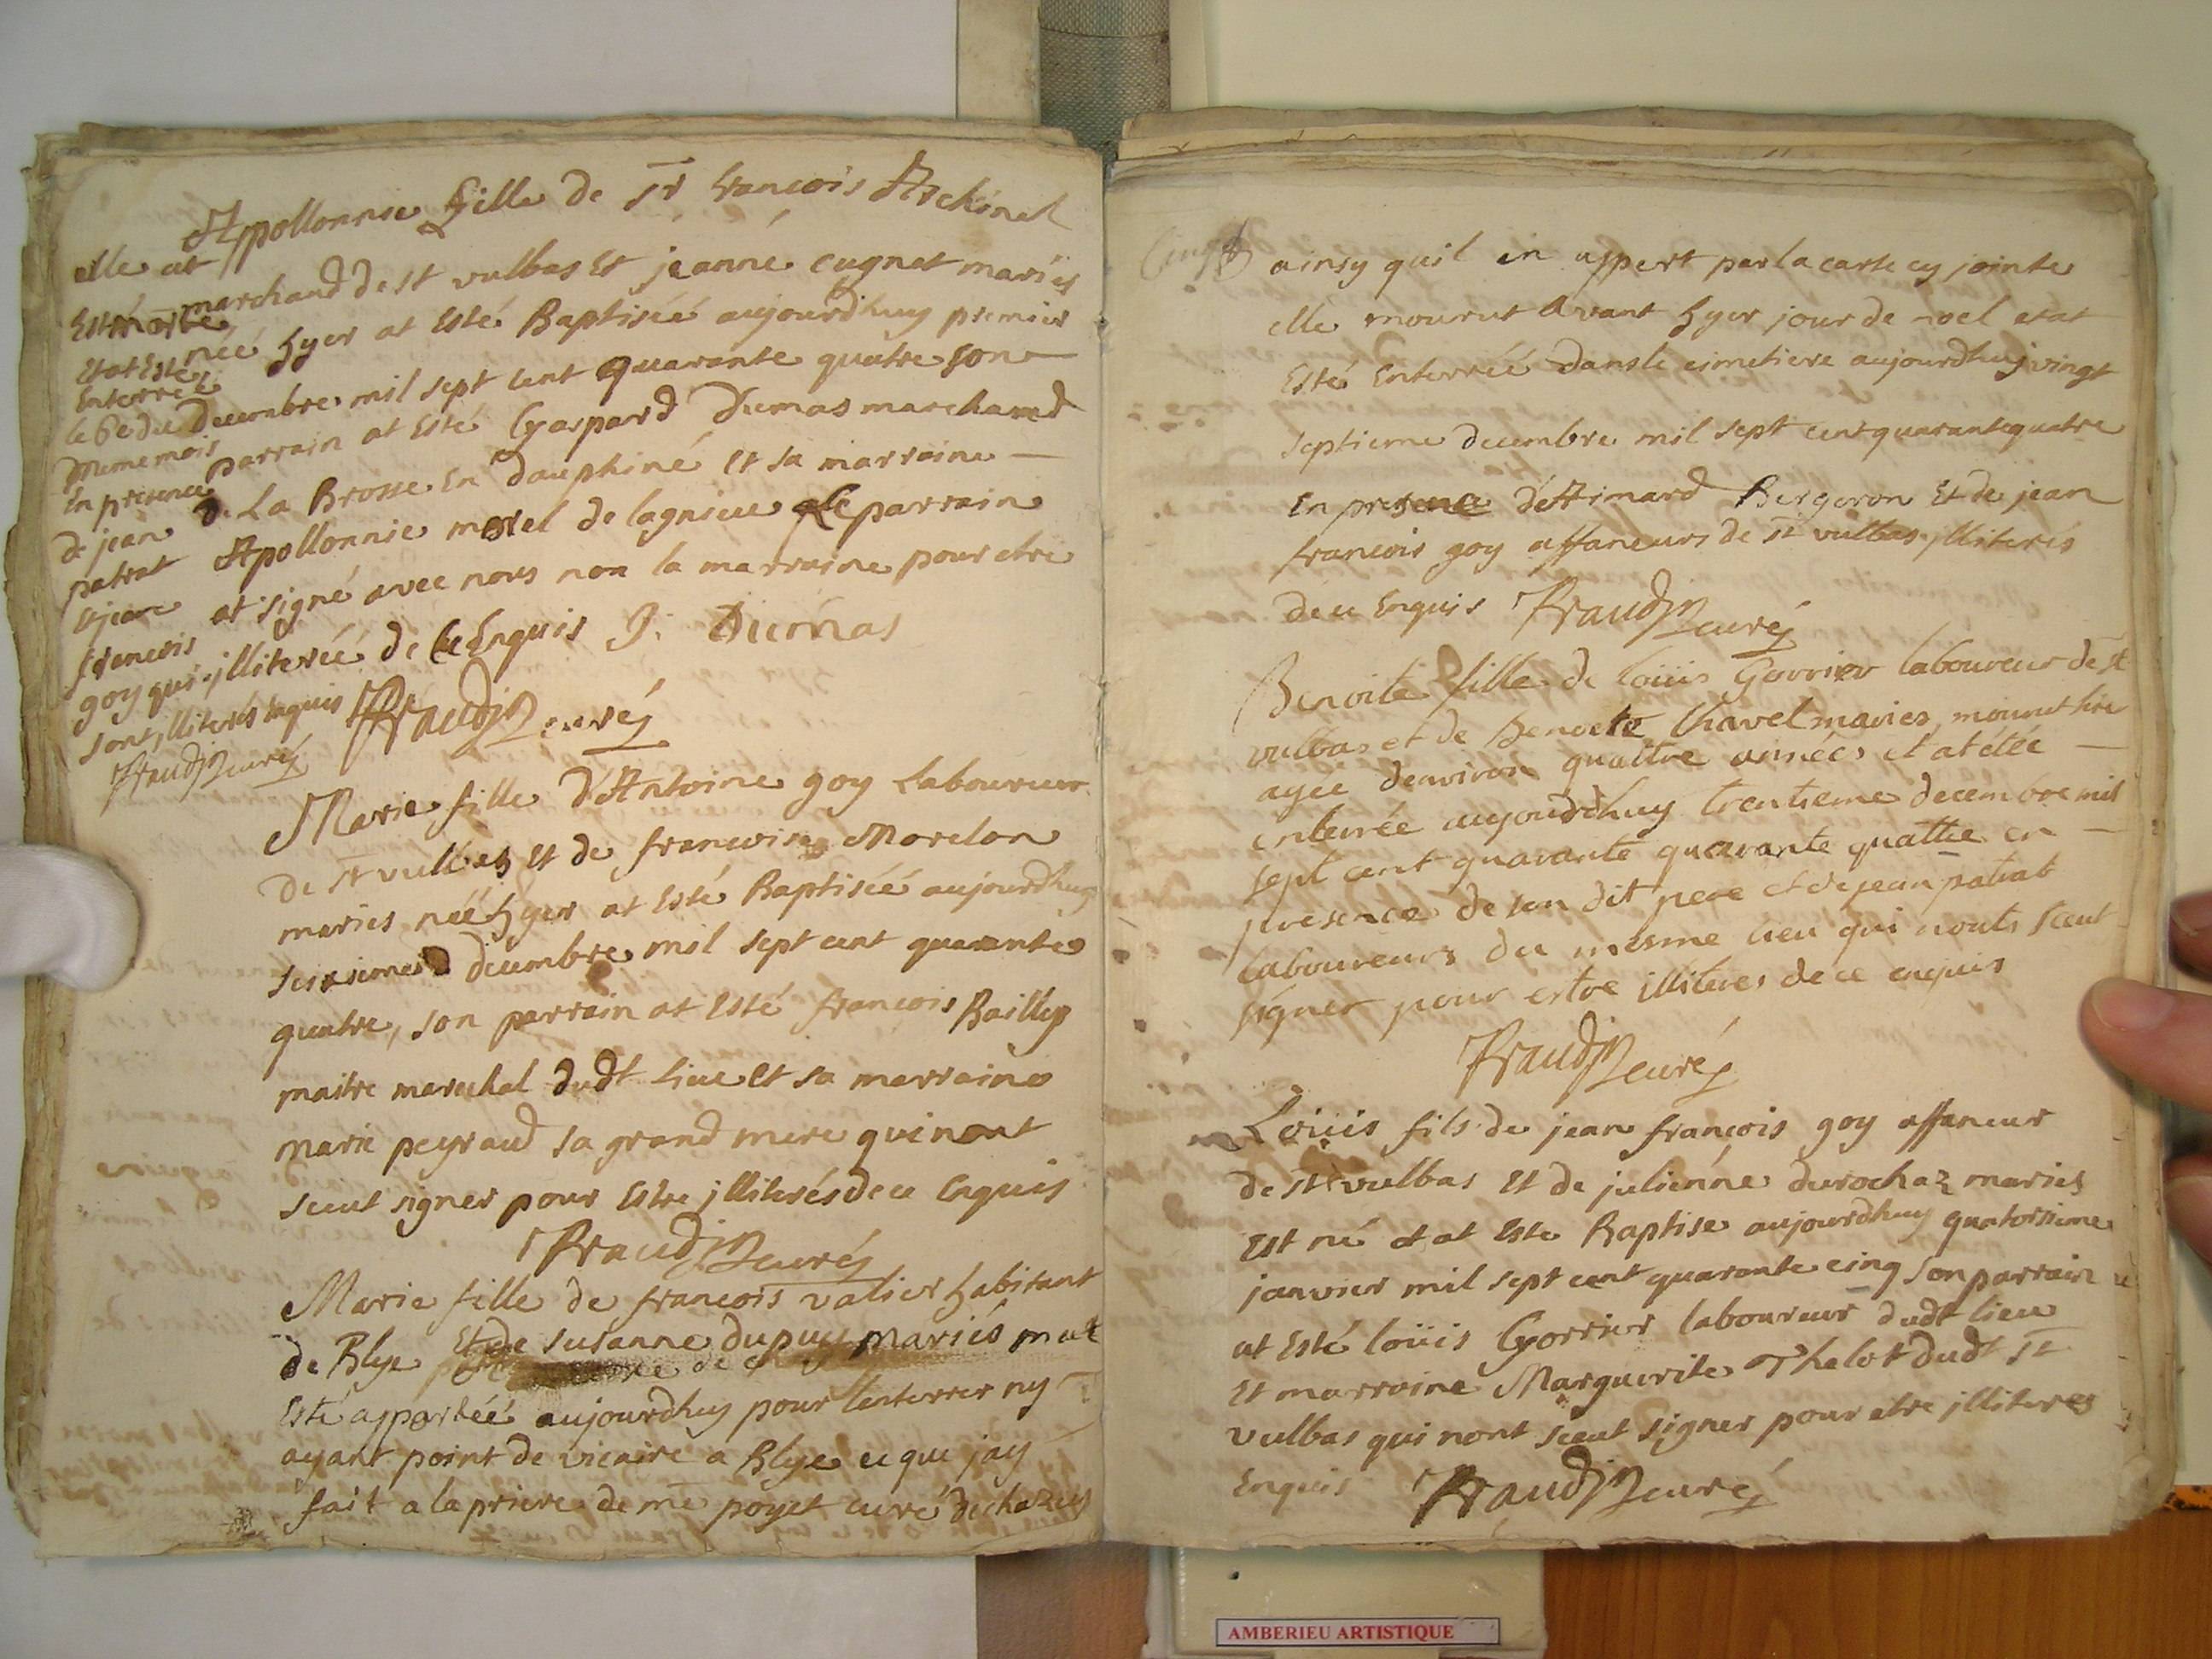 Apollonnie fille de Sr francois Archinel
marchand de st vulbas Et jeanné cugnet mariés
néé hyer at Esté Baptiséé aujourdhuy premier
Decembre mil sept cent quarante quatre son
parrain at Esté Gaspard Dumas marchand
de La Brosse En dauphiné et sa marraine
Apollonnie morel de lagnieu le parrain
at signé avec nous non la marraine pour etre
jlliteréé de ce Enquis Dumas
curé
elle at
Esté morte
Et at Esté
Enterréé
le 6e du
meme mois
En presence
de jean
patrat
Et jean
francois
goy qui
sont jlliterés Enquis
curé
Marie fille d'Antoine goy Laboureur
de st vulbas Et de francoise Morelon
mariés néé hyer at Esté Baptiséé aujourdhuy
seisieme decembre mil sept cent quarante
quatre, son parrain at Esté francois Bailly
maitre marechal dudt Lieu et sa marraine
marie peyraud sa grand mere qui nont
sceut signer pour Estre jlliterés de ce Enquis
curé
Marie fille de francois valier habitant
de Blye Et de susanne dupuy mariés mat
Esté apportéé aujourdhuy pour lenterrer ny
ayant point de vicaire a Blye ce que jay
fait a la priere de me poyet curé de chazey
ainsy quil en appert par la carte cy jointe
elle mourut avant hyer jour de noel et at
Esté Enterréé dans le cimetiere aujourdhuy vingt
septieme decembre mil sept cent quarante quatre
En presence d'Aimard Bergeron Et de jean
francois goy affaneurs de st vulbas jlliterés
de ce Enquis curé
Benoite fille de Loüis Gorrier laboureur de st
vulbas et de Benoite Chavel mariés, mourut hier
agée denviron quattre années et at étée
enterrée aujourdhuy trentieme decembre mil
sept cent quarante quarante quattre en
presence de son dit pere et de jean patrat
laboureurs du mesme lieu qui nonts sceut
signer pour estre illiteres de ce enquis
curé
Loüis fils de jean françois goy affaneur
de st vulbas Et de juliénne durochaz mariés
Est né et at Este Baptise aujourdhuy quatorsieme
janvier mil sept cent quarante cinq son parrain
at Esté loüis Gorrier laboureur dudt lieu
Et marraine Marguerite Thelot dudt st
vulbas qui nont sceut signer pour etre jlliteres
Enquis curé
AMBERIEU ARTISTIQUE